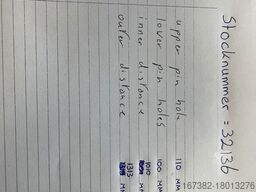 Stocknummer = 32136
upper pin hole 110 MM
lover pin holes 100 MM
inner distance 1010 MM
outer distance 1313 MM
167382-18013276